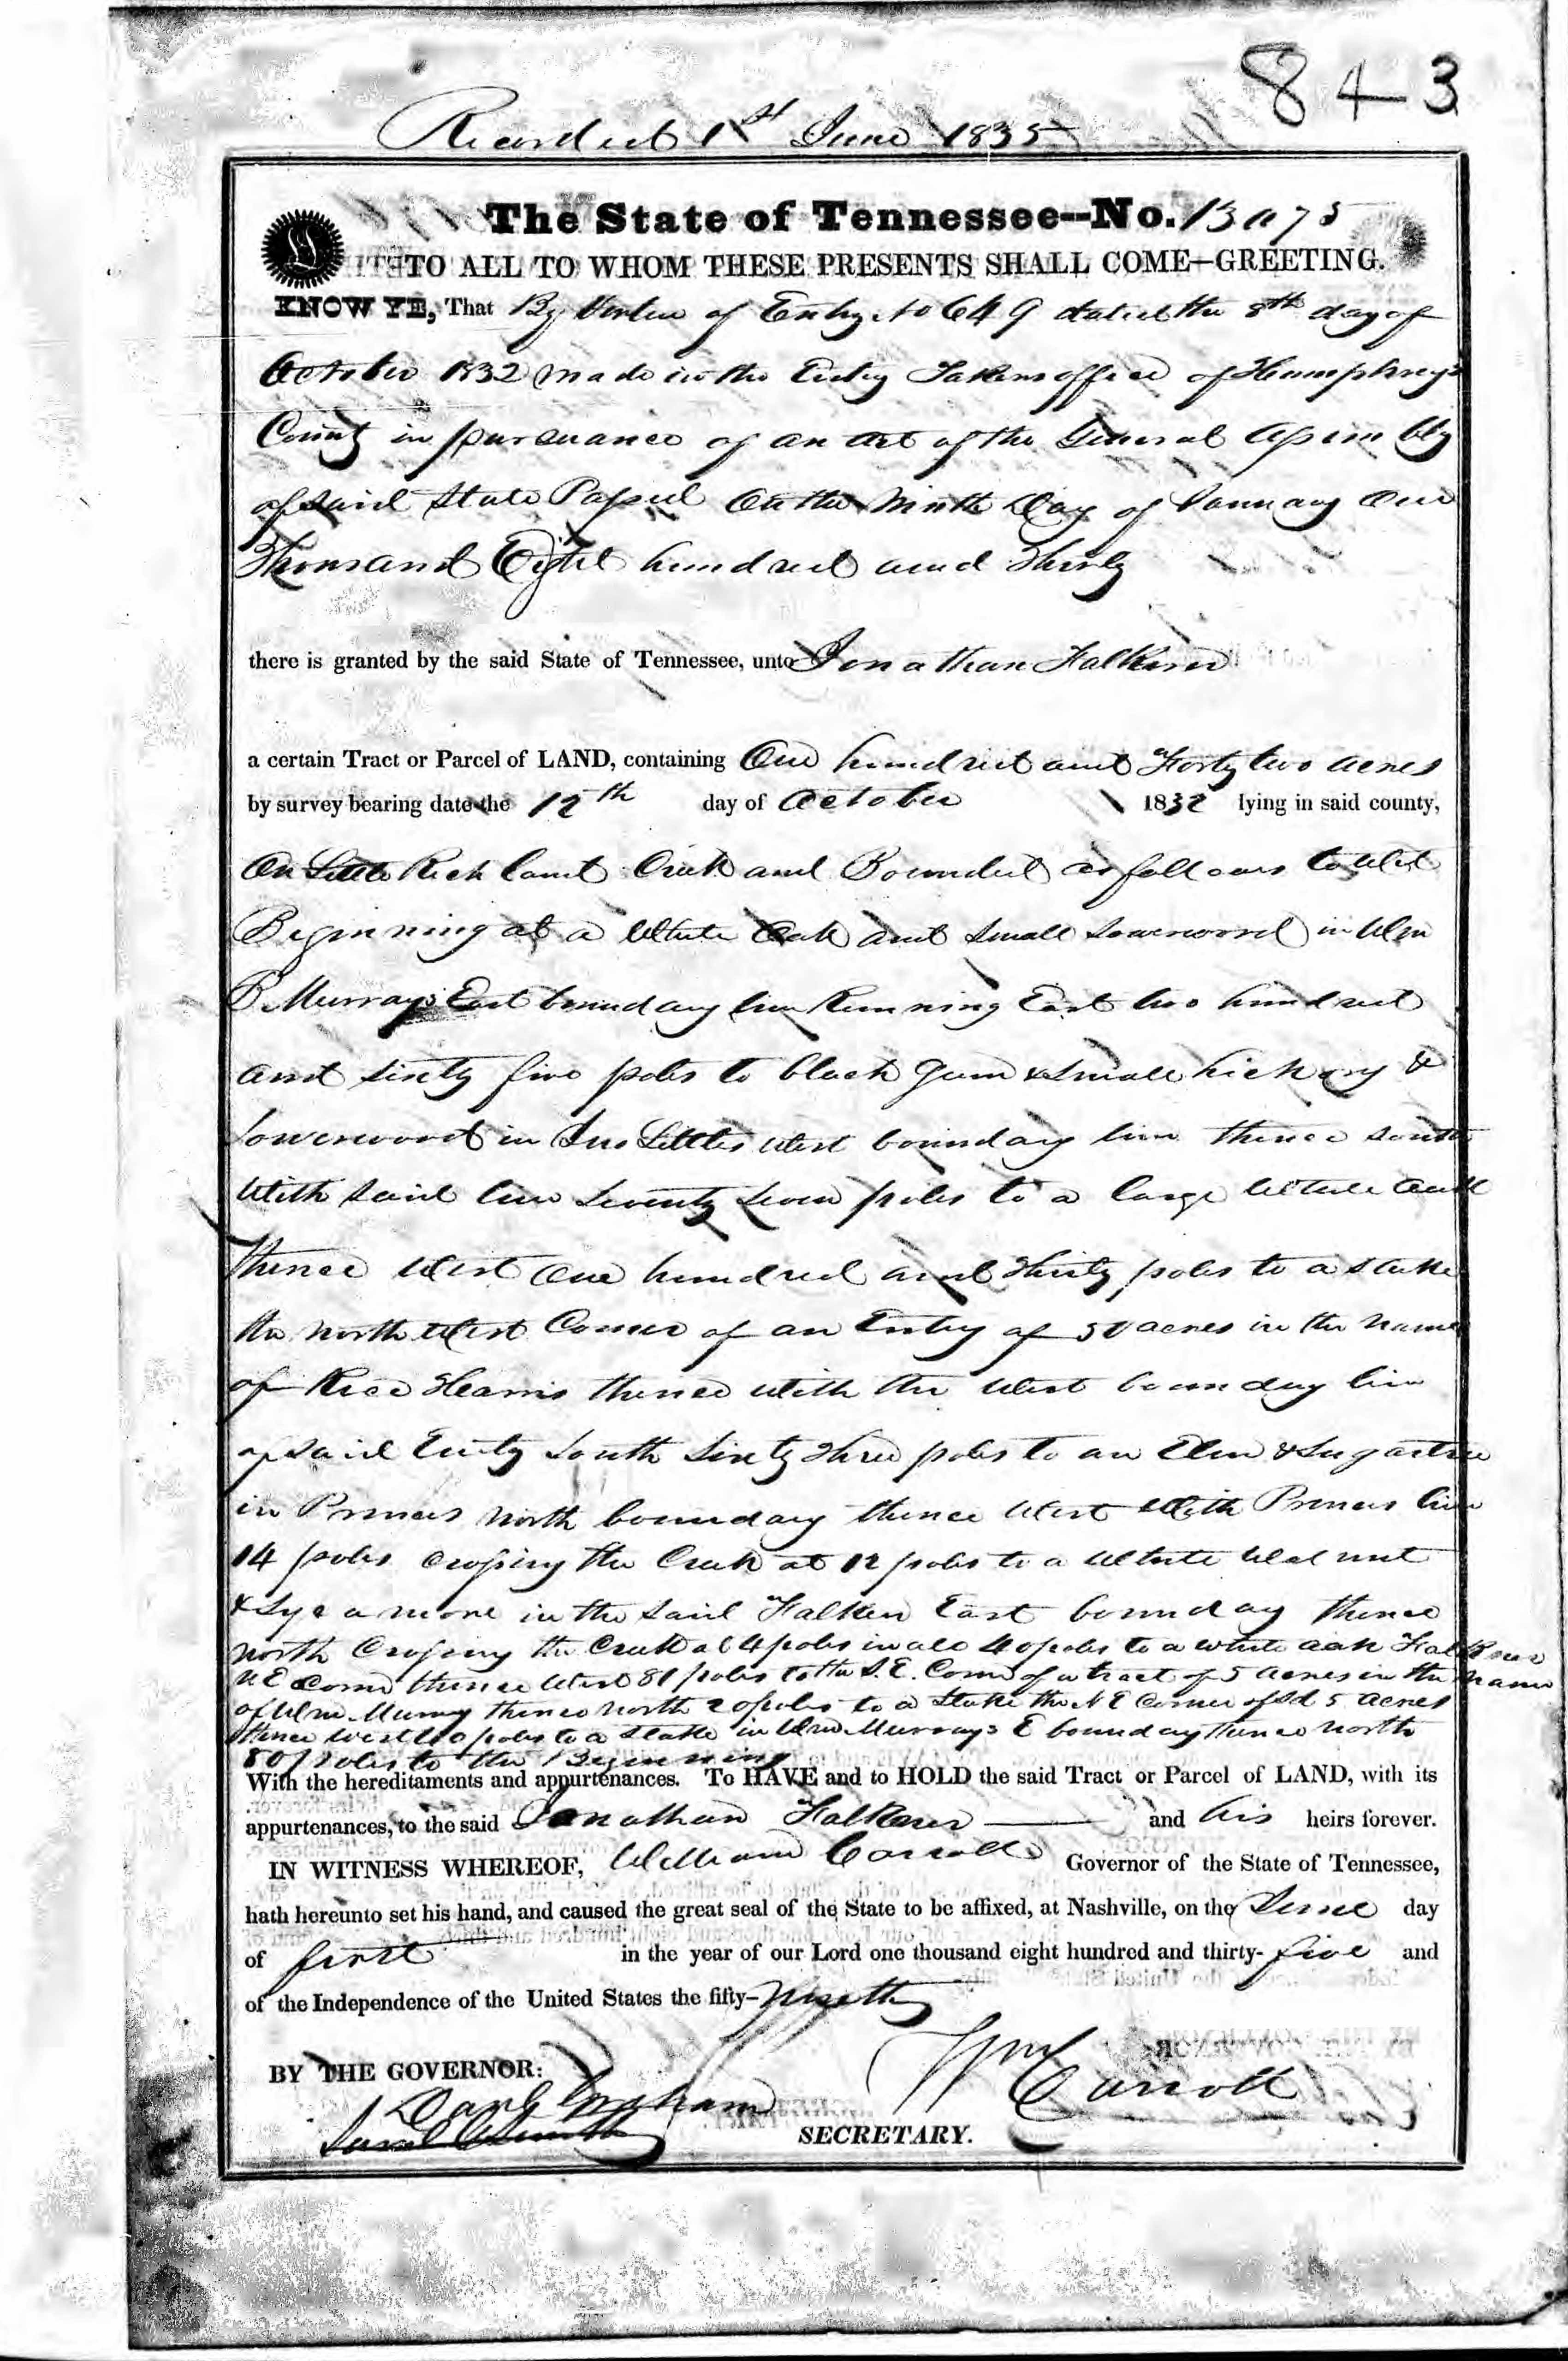 843
Recorded 1st June 1835
The State of Tennessee--No.
TO ALL TO WHOM THESE PRESENTS SHALL COME—GREETING.
KNOW YE, That By Virtue of Entry No 649 dated the 8th day of
October 1832 made in the Entry Takers office of Humphreys
County in pursuance of an act of the General Assembly
of said State Passed On the Ninth Day of January One
Thousand Eight hundred and Thirty
there is granted by the said State of Tennessee, unto Jonathan Falkner
a certain Tract or Parcel of LAND, containing One hundred and Forty two acres
by survey bearing date the 12th day of October 1832 lying in said county,
On Little Rich land Creek and Bounded as follows to Wit
Beginning at a White Oak and Small Sowerwood in Wm
B. Murrays East boundary line Running East two hundred
and sixty five poles to black Gum & Small hickory &
Sowerwood in Jno Littles West boundary line thence South
With said line Seventy Seven poles to a large White Oak
thence West One hundred and Thirty poles to a stake
the North West Corner of an Entry of 50 acres in the name
of Rice Harris thence with the West boundary line
of said Entry South Sixty three poles to an Elm & Sugartree
in north boundary thence West With line
14 poles crossing the Creek at 12 poles to a White Walnut
& Sycamore in the said Falkner East boundary thence
north Crossing the Creek at 4 poles in all 40 poles to a white oak Falkners
N E Corner thence West 81 poles to the S. E. Corner of a tract of 5 acres in the name
of Wm. Murray thence north 20 poles to a Stake the N E Corner of Sd 5 acres
thence West 40 poles to a Stake in Wm Murrays E boundary thence north
80 poles to the Beginning
With the hereditaments and appurtenances. To HAVE and to HOLD the said Tract or Parcel of LAND, with its
appurtenances, to the said Jonathan Falkner and his heirs forever.
IN WITNESS WHEREOF, William Carroll Governor of the State of Tennessee,
hath hereunto set his hand, and caused the great seal of the State to be affixed, at Nashville, on the June day
of first in the year of our Lord one thousand eight hundred and thirty-five and
of the Independence of the United States the fifty-Nineth
Wm Carroll
BY THE GOVERNOR:
Graham
Saml G Smith
SECRETARY.